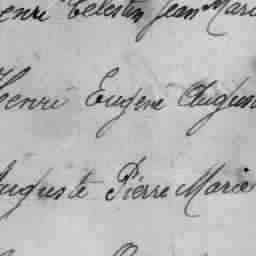 enri Celestin Jean Mari
Henri Eugene Augus
Auguste Pierre Marie